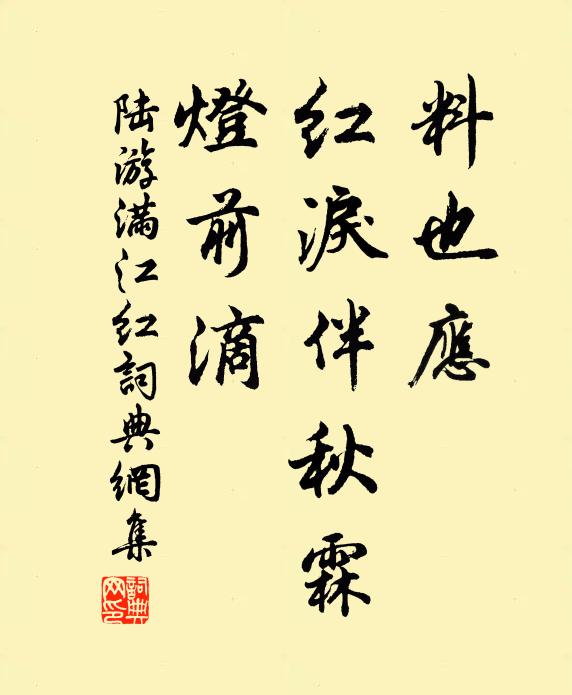 料也應
紅淚伴秋霖
燈前滴
陸游滿江紅詞典網集
詞典网印